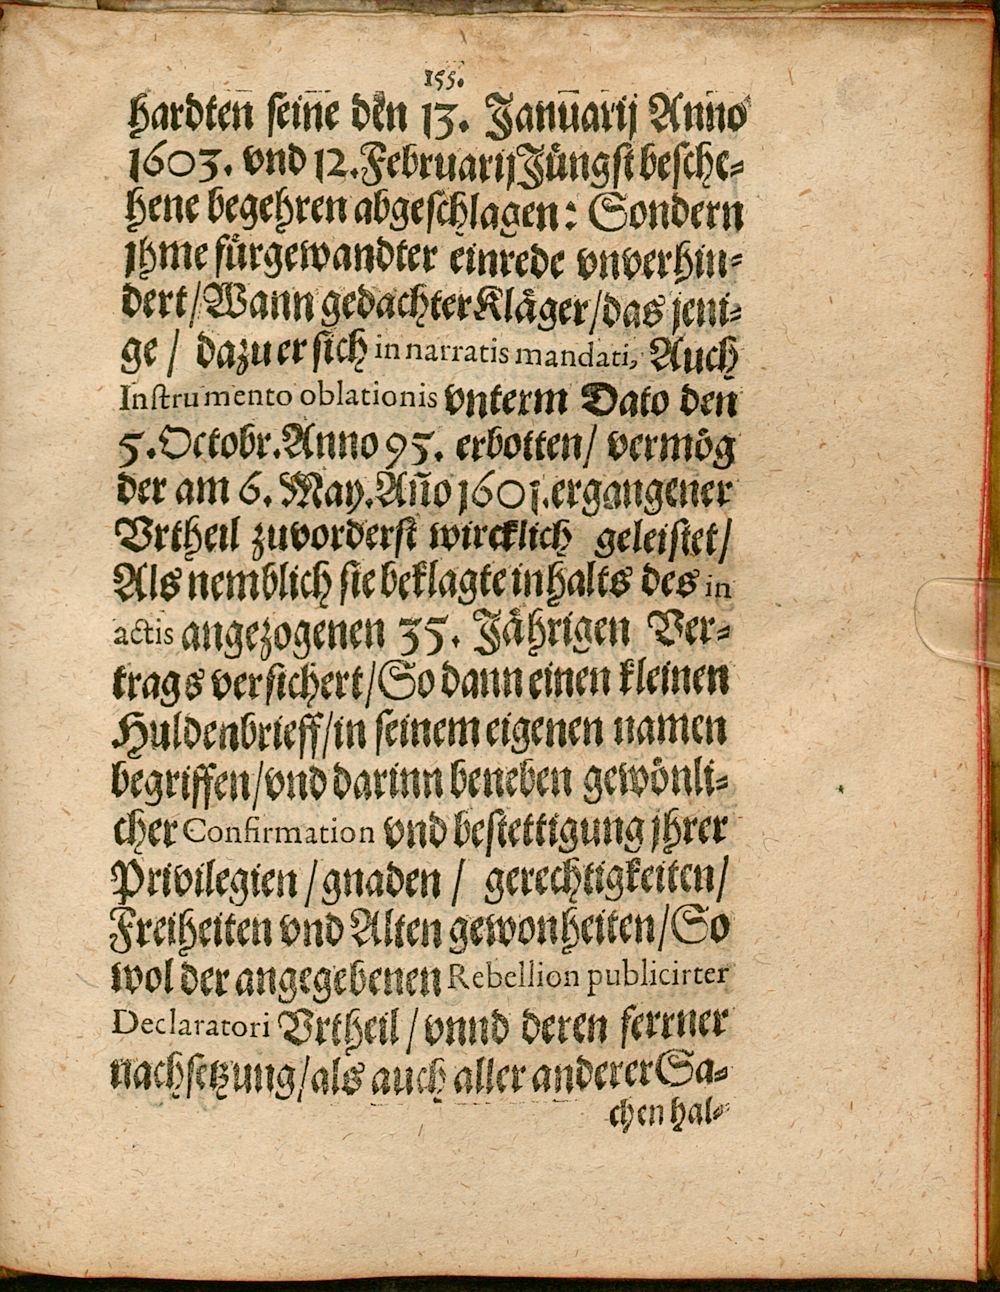 155.
hardten seine den 13. Januarij Anno
1603. vnd 12. Februarij Jüngst besche-
hene begehren abgeschlagen: Sondern
jhme fürgewandter einrede vnverhin-
dert/ Wann gedachter Kläger/ das jeni-
ge / dazu er sich in narratis mandati, Auch
Instrumento oblationis vnterm Dato den
5. Octobr. Anno 95. erbotten/ vermög
der am 6. May. Año 1601. ergangener
Vrtheil zuvorderst wircklich geleistet/
Als nemblich sie beklagte inhalts des in
actis angezogenen 35. Jährigen Ver-
trags versichert/ So dann einen kleinen
Huldenbrieff/ in seinem eigenen namen
begriffen/ vnd darinn beneben gewönli-
cher Confirmation vnd bestettigung jhrer
Privilegien / gnaden / gerechtigkeiten/
Freiheiten vnd Alten gewonheiten/ So
wol der angegebenen Rebellion publicirter
Declaratori Vrtheil / vnnd deren ferrner
nachsetzung/ als auch aller anderer Sa-
chen hal-